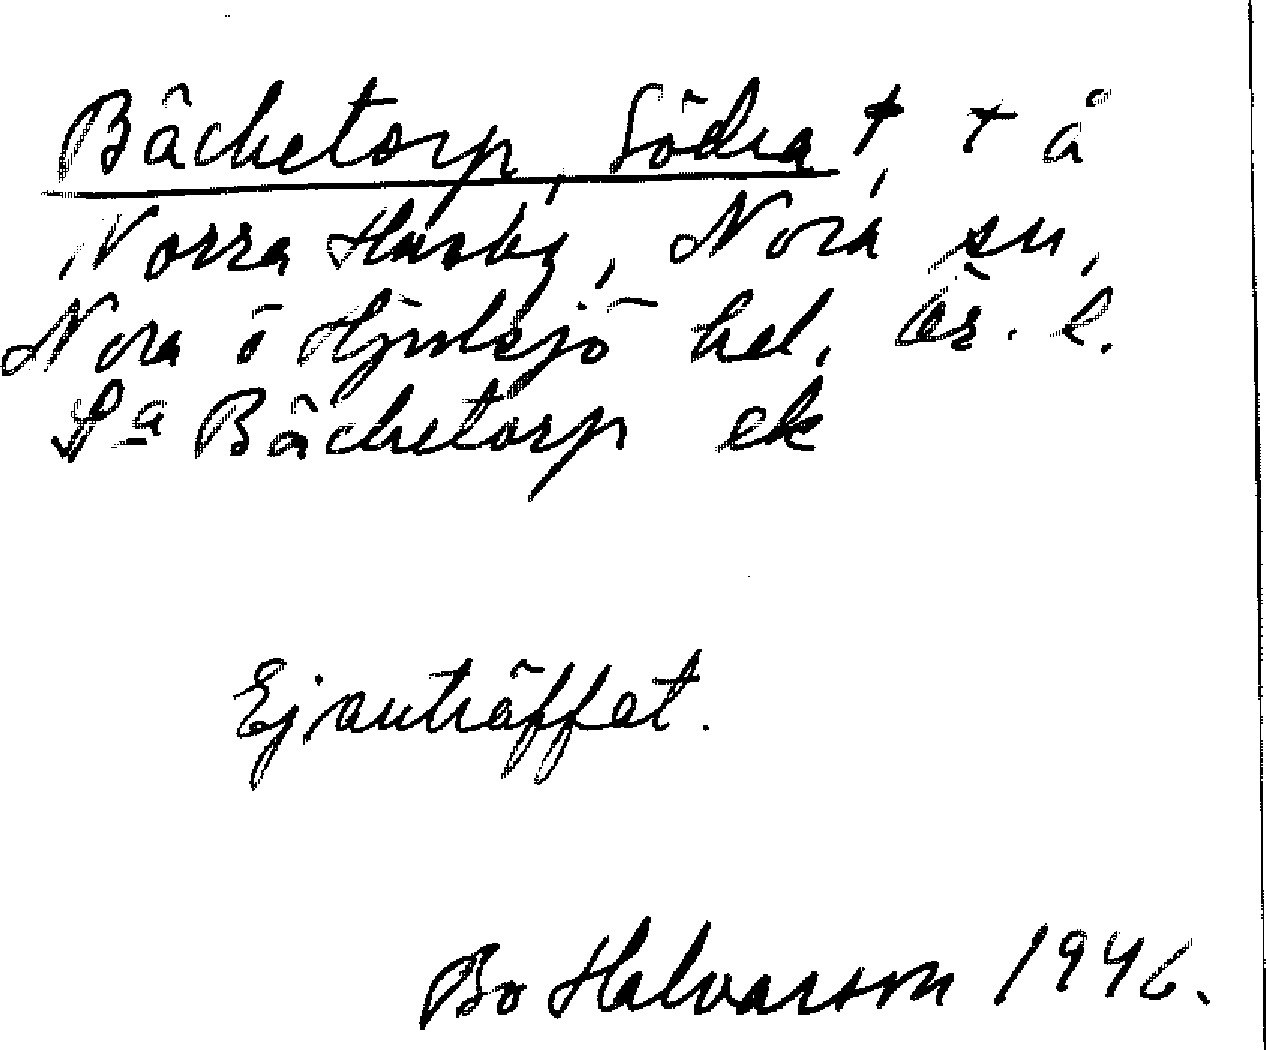 Bäcketorp, Södra †, + å
Norra Husby, Nora sn,
Nora o Hjulsjö hd, Ör. l.
Sa Bäcketorp ek
Ej anträffat.
Bo Halvarson 1946.